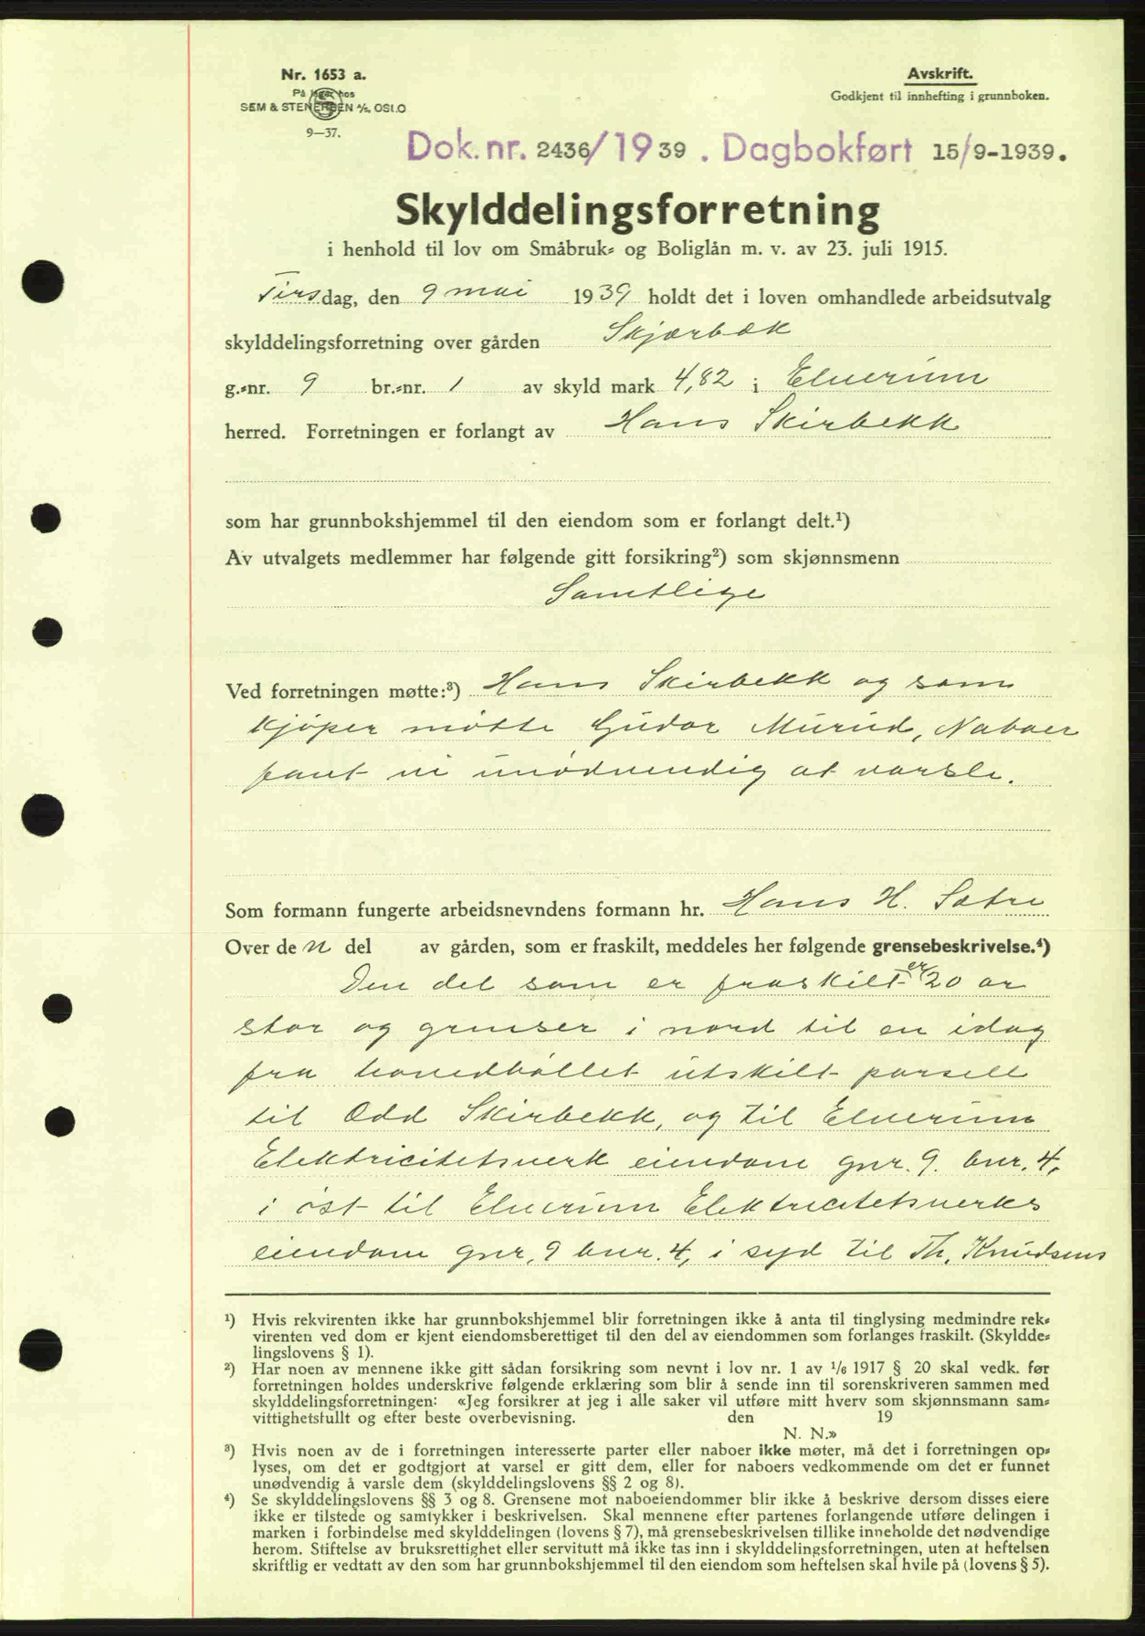 Nr. 1653 a.
På lager hos
SEM & STENERSEN A/S, OSLO
9—37.
Avskrift.
Godkjent til innhefting i grunnboken.
Dok. nr. 2436/1939. Dagbokført 15/9-1939.
Skylddelingsforretning
i henhold til lov om Småbruk- og Boliglån m. v. av 23. juli 1915.
Tirsdag, den 9 mai 1939 holdt det i loven omhandlede arbeidsutvalg
skylddelingsforretning over gården Skjærbæk
g.-nr. 9 br.-nr. 1 av skyld mark 4,82 i Elverum
herred. Forretningen er forlangt av Hans Skirbekk
som har grunnbokshjemmel til den eiendom som er forlangt delt.¹)
Av utvalgets medlemmer har følgende gitt forsikring²) som skjønnsmenn
Samtlige
Ved forretningen møtte:³) Hans Skirbekk og som
kjøper møtte Gudor Murud, Naboer
fant vi unødvendig at varsle.
Som formann fungerte arbeidsnevndens formann hr. Hans H. Sætre
Over den del av gården, som er fraskilt, meddeles her følgende grensebeskrivelse.⁴)
Den del som er fraskilt er 20 ar
stor og grenser i nord til en idag
fra hovedbøllet utskilt parsell
til Odd Skirbekk, og til Elverum
Elektricitetsverk eiendom gnr. 9. bnr. 4,
i øst til Elverum Elektricitetsverks
eiendom gnr. 9 bnr. 4, i syd til Th. Knudsens
¹) Hvis rekvirenten ikke har grunnbokshjemmel blir forretningen ikke å anta til tinglysing medmindre rek-
virenten ved dom er kjent eiendomsberettiget til den del av eiendommen som forlanges fraskilt. (Skyldde-
lingslovens § 1).
²) Har noen av mennene ikke gitt sådan forsikring som nevnt i lov nr. 1 av 1/6 1917 § 20 skal vedk. før
forretningen holdes underskrive følgende erklæring som blir å sende inn til sorenskriveren sammen med
skylddelingsforretningen: «Jeg forsikrer at jeg i alle saker vil utføre mitt hverv som skjønnsmann sam-
vittighetsfullt og efter beste overbevisning. den 19
N. N.»
³) Hvis noen av de i forretningen interesserte parter eller naboer ikke møter, må det i forretningen op-
lyses, om det er godtgjort at varsel er gitt dem, eller for naboers vedkommende om det er funnet
unødvendig å varsle dem (skylddelingslovens §§ 2 og 8).
⁴) Se skylddelingslovens §§ 3 og 8. Grensene mot naboeiendommer blir ikke å beskrive dersom disses eiere
ikke er tilstede og samtykker i beskrivelsen. Skal mennene efter partenes forlangende utføre delingen i
marken i forbindelse med skylddelingen (lovens § 7), må grensebeskrivelsen tillike inneholde det nødvendige
herom. Stiftelse av bruksrettighet eller servitutt må ikke tas inn i skylddelingsforretningen, uten at heftelsen
skriftlig er vedtatt av den som har grunnbokshjemmel til den eiendom som heftelsen skal hvile på (lovens § 5).